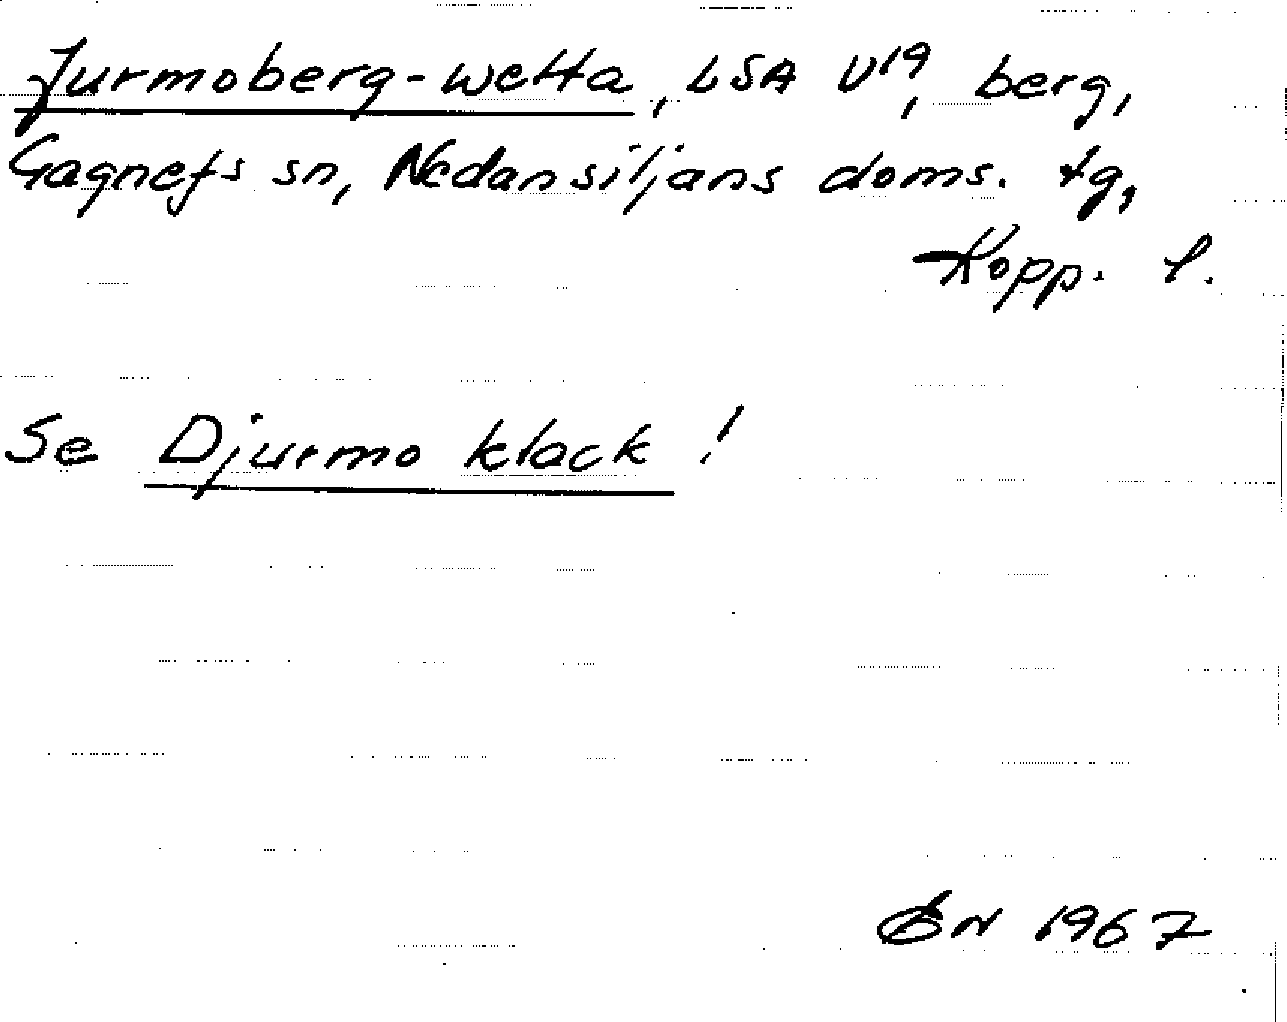 Jurmoberg-wetta, LSA U19, berg,
Gagnefs sn, Nedansiljans doms. tg,
Kopp. l.
Se Djurmo klack!
ÖN 1967